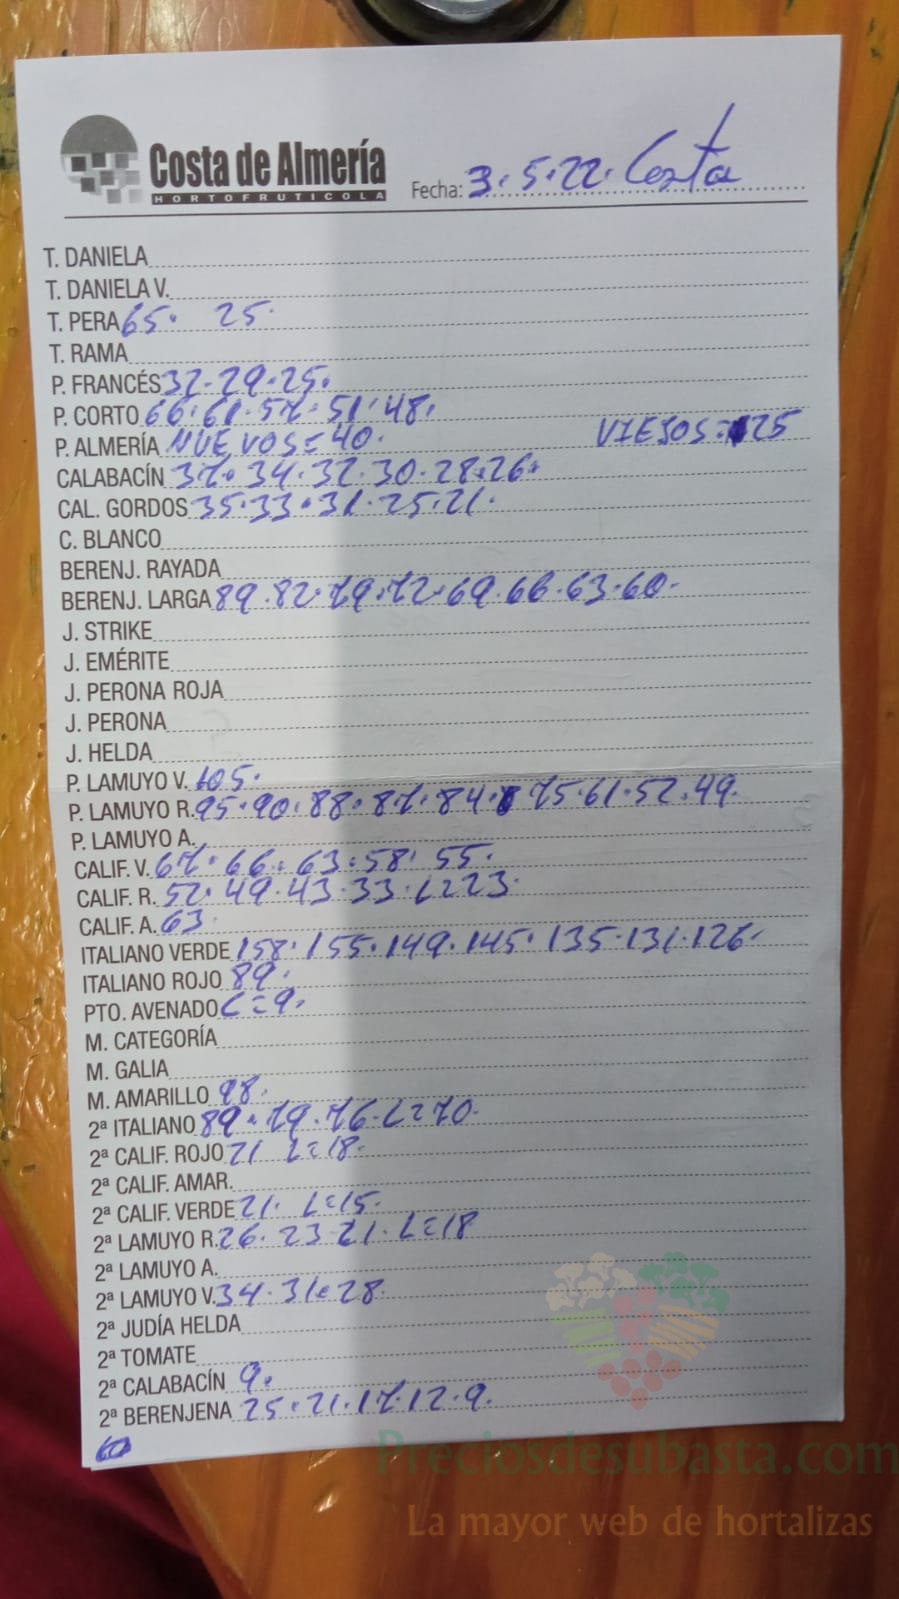 Costa de Almería
HORTOFRUTICOLA
Fecha: 3.5.22. Costa
T. DANIELA
T. DANIELA V.
T. PERA 65. 25.
T. RAMA
P. FRANCÉS 32.29.25.
P. CORTO 66.61.57.51.48.
P. ALMERÍA NUEVOS=40. VIEJOS=25
CALABACÍN 37.34.32.30.28.26.
CAL. GORDOS 35.33.31.25.21.
C. BLANCO
BERENJ. RAYADA
BERENJ. LARGA 89.82.79.72.69.66.63.60.
J. STRIKE
J. EMÉRITE
J. PERONA ROJA
J. PERONA
J. HELDA
P. LAMUYO V. 105.
P. LAMUYO R. 95.90.88.87.84.75.61.52.49.
P. LAMUYO A.
CALIF. V. 67.66.63.58.55.
CALIF. R. 52.49.43.33.L=23.
CALIF. A. 63.
ITALIANO VERDE 158.155.149.145.135.131.126.
ITALIANO ROJO 89.
PTO. AVENADO L=9.
M. CATEGORÍA
M. GALIA
M. AMARILLO 98.
2ª ITALIANO 89.79.76.L=70.
2ª CALIF. ROJO 21 L=18.
2ª CALIF. AMAR.
2ª CALIF. VERDE 21. L=15.
2ª LAMUYO R. 26.23.21.L=18
2ª LAMUYO A.
2ª LAMUYO V. 34.31.28.
2ª JUDÍA HELDA
2ª TOMATE
2ª CALABACÍN 9.
2ª BERENJENA 25.21.17.12.9.
Preciosdesubasta.com
La mayor web de hortalizas